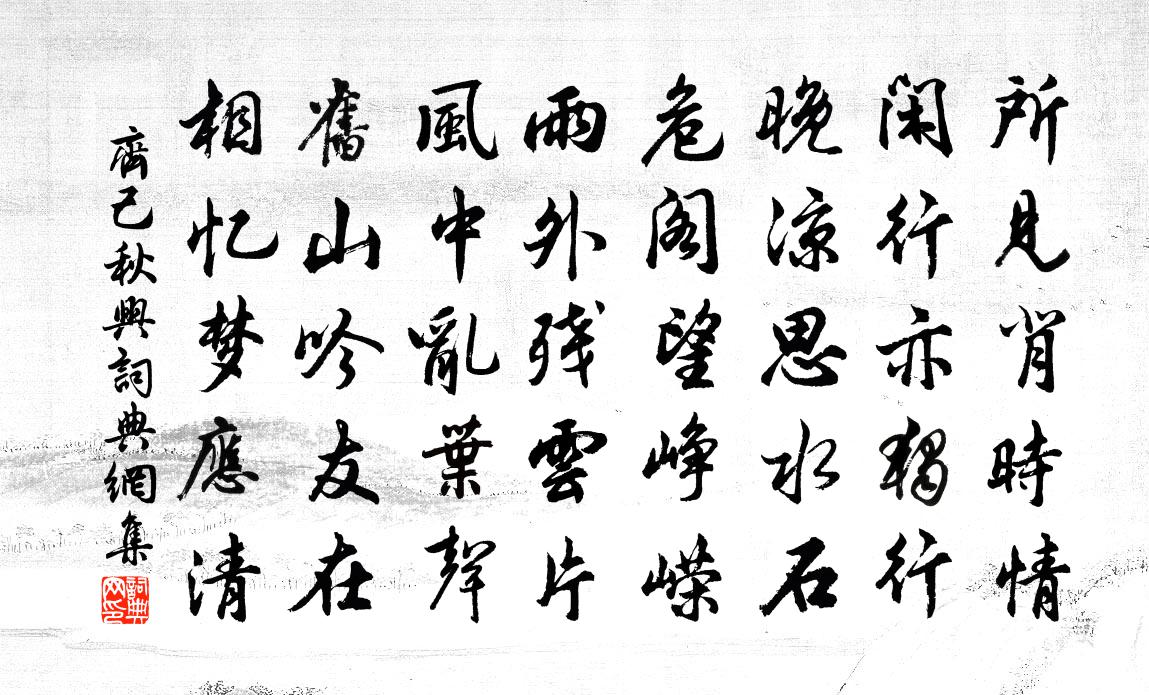 所見背時情
閑行亦獨行
晚涼思水石
危閣望崢嶸
雨外残雲片
風中亂葉聲
舊山吟友在
相忆梦應清
齊己秋興詞典網集
詞典网印